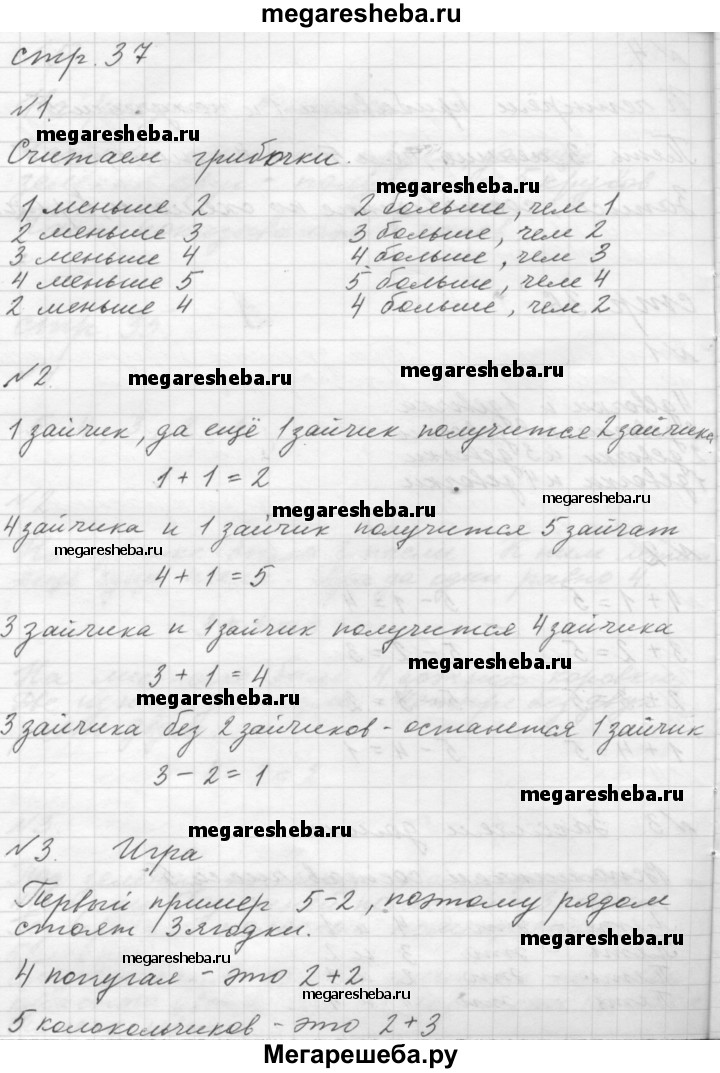 megaresheba.ru
стр. 37
№1.
megaresheba.ru
Считаем грибочки.
megaresheba.ru
1 меньше 2 2 больше, чем 1
2 меньше 3 3 больше, чем 2
3 меньше 4 4 больше, чем 3
4 меньше 5 5 больше, чем 4
2 меньше 4 4 больше, чем 2
№2.
megaresheba.ru
megaresheba.ru
1 зайчик, да ещё 1 зайчик получится 2 зайчика
1 + 1 = 2
megaresheba.ru
megaresheba.ru
4 зайчика и 1 зайчик получится 5 зайчат
megaresheba.ru
4 + 1 = 5
3 зайчика и 1 зайчик получится 4 зайчика
megaresheba.ru
3 + 1 = 4
megaresheba.ru
3 зайчика без 2 зайчиков - останется 1 зайчик
3 - 2 = 1
megaresheba.ru
megaresheba.ru
№3. Игра
Первый пример 5-2, поэтому рядом
стоят 3 ягодки.
megaresheba.ru
megaresheba.ru
4 попугая - это 2+2
megaresheba.ru
5 колокольчиков - это 2+3
Мегарешеба.ру